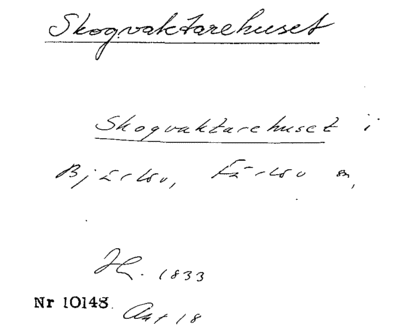 Skogvaktarehuset
Skogvaktarehuset i
Bjärlöv, Färlöv sn,
Hl. 1833
Nr 10148
Akt 18